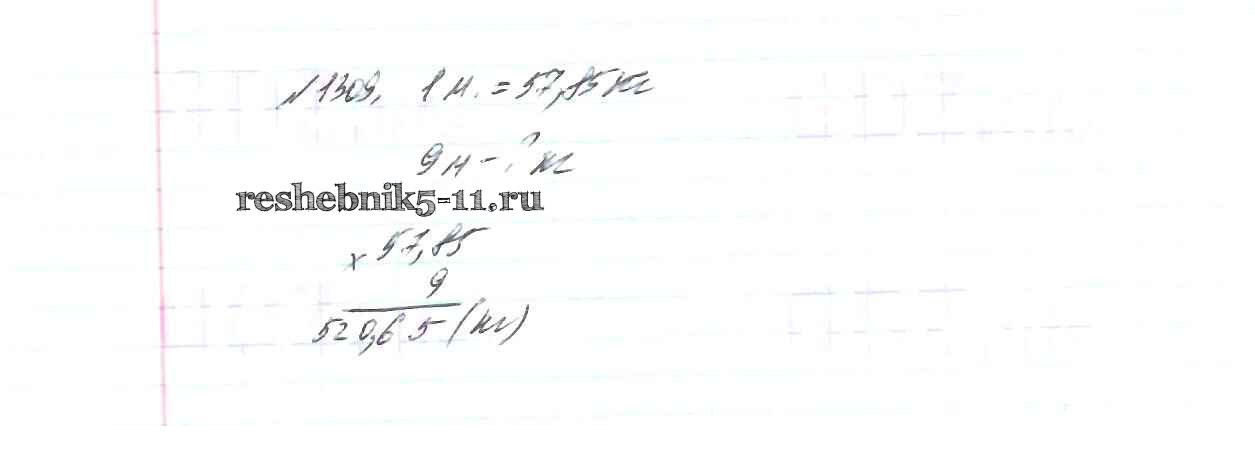 №1309. 1 м. = 57,85 кг
9 м - ? кг
reshebnik5-11.ru
× 57,85
9
520,65 (кг)